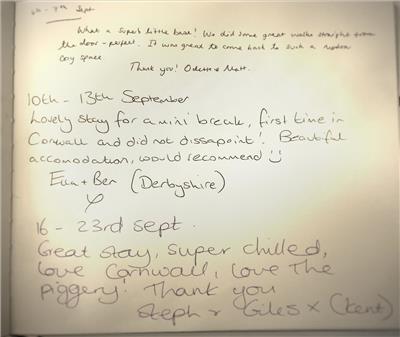 - 9th Sept
What a superb little base! We did some great walks straight from
the door - perfect. It was great to come back to such a modern
cosy space.
Thank you! Odette & Matt.
10th - 13th September
Lovely stay for a mini break, first time in
Cornwall and did not dissapoint! Beautiful
accomodation, would recommend :)
+ Ben (Derbyshire)
16 - 23rd sept.
Great stay, super chilled,
love Cornwall, love The
piggery! Thank you
Steph & Giles x (Kent)